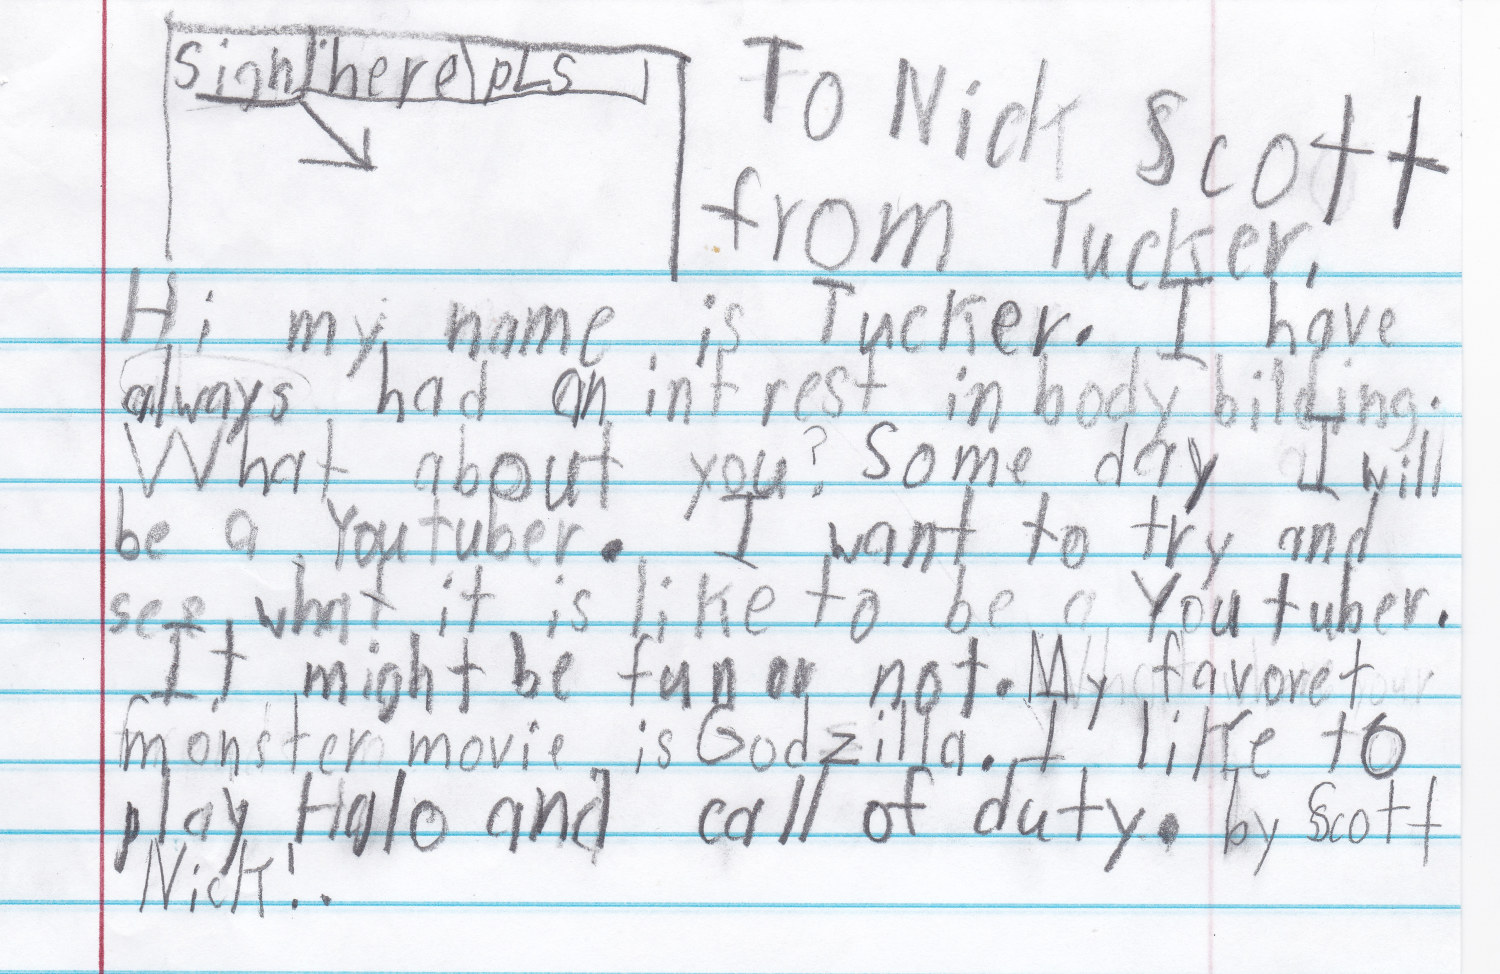 Sign here pLS
To Nick Scott
from Tucker.
Hi my name is Tucker. I have
always had an intrest in body bilding.
What about you? Some day I will
be a Youtuber. I want to try and
see what it is like to be a Youtuber.
It might be fun or not. My favoret
monster movie is Godzilla. I like to
play Halo and call of duty. by Scott
Nick!..